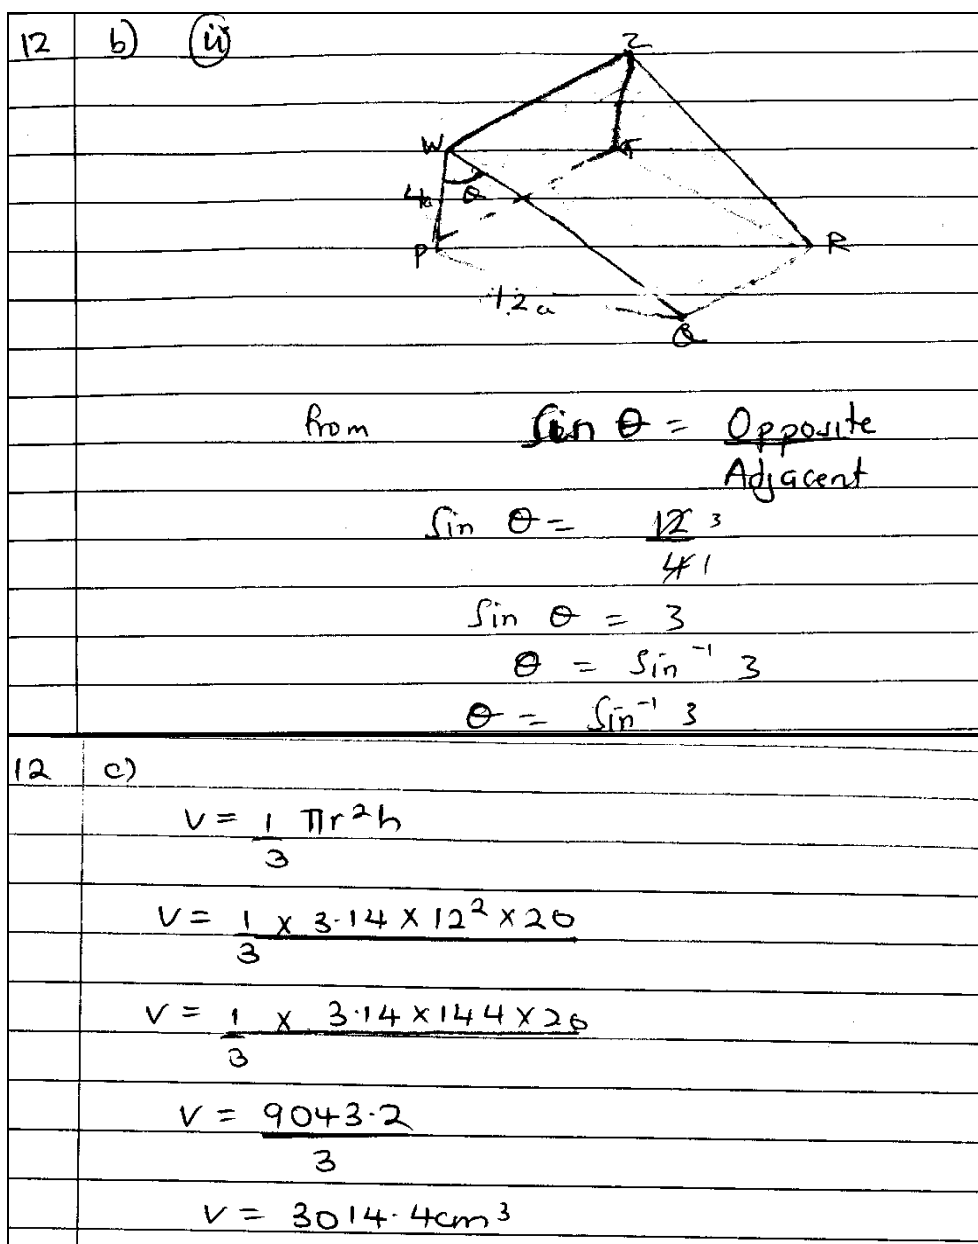 12 b) (ii)
Z
W
T
4a θ
P R
12a
Q
from Sin θ = Opposite
Adjacent
Sin θ = 12 3
4 1
Sin θ = 3
θ = Sin⁻¹ 3
θ = Sin⁻¹ 3
12 c)
V = 1 πr²h
3
V = 1 × 3.14 × 12² × 20
3
V = 1 × 3.14 × 144 × 20
3
V = 9043.2
3
V = 3014.4cm³